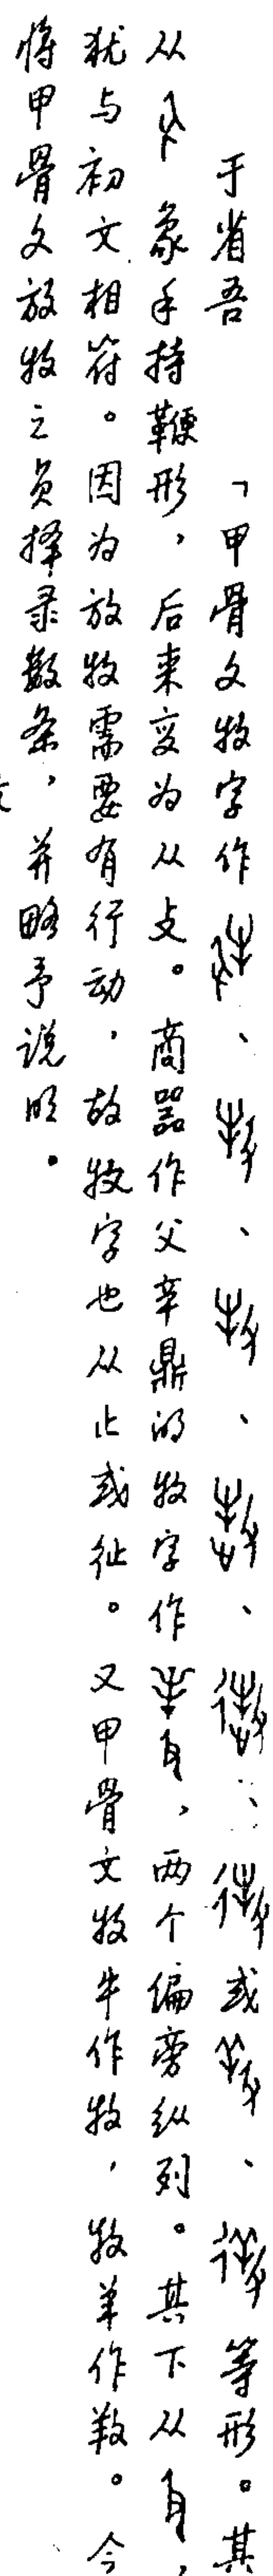 于省吾 「甲骨文牧字作、、、、、或、等形。其
从象手持鞭形，后来变为从攴。商器作父辛鼎的牧字作，两个偏旁纵列。其下从，
犹与初文相符。因为放牧需要有行动，故牧字也从止或㣟。又甲骨文牧牛作牧，牧羊作䍩。今
将甲骨文放牧之贞择录数条，并略予说明。